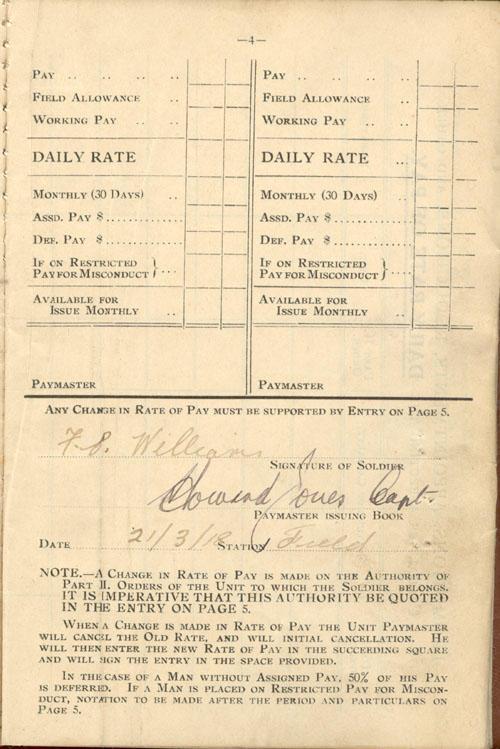 —4—
PAY .. .. .. ..
FIELD ALLOWANCE ..
WORKING PAY .. ..
DAILY RATE
MONTHLY (30 DAYS) ..
ASSD. PAY $..............
DEF. PAY $..............
IF ON RESTRICTED
PAY FOR MISCONDUCT } ....
AVAILABLE FOR
ISSUE MONTHLY ..
PAYMASTER
PAY .. .. .. ..
FIELD ALLOWANCE ..
WORKING PAY .. ..
DAILY RATE ...
MONTHLY (30 DAYS) ..
ASSD. PAY $..............
DEF. PAY $..............
IF ON RESTRICTED
PAY FOR MISCONDUCT } ....
AVAILABLE FOR
ISSUE MONTHLY ..
PAYMASTER
ANY CHANGE IN RATE OF PAY MUST BE SUPPORTED BY ENTRY ON PAGE 5.
F. S. Williams
SIGNATURE OF SOLDIER
Howard Jones Capt.
PAYMASTER ISSUING BOOK
DATE 21/3/18 STATION Field
NOTE.—A CHANGE IN RATE OF PAY IS MADE ON THE AUTHORITY OF
PART II. ORDERS OF THE UNIT TO WHICH THE SOLDIER BELONGS.
IT IS IMPERATIVE THAT THIS AUTHORITY BE QUOTED
IN THE ENTRY ON PAGE 5.
WHEN A CHANGE IS MADE IN RATE OF PAY THE UNIT PAYMASTER
WILL CANCEL THE OLD RATE, AND WILL INITIAL CANCELLATION. HE
WILL THEN ENTER THE NEW RATE OF PAY IN THE SUCCEEDING SQUARE
AND WILL SIGN THE ENTRY IN THE SPACE PROVIDED.
IN THE CASE OF A MAN WITHOUT ASSIGNED PAY, 50% OF HIS PAY
IS DEFERRED. IF A MAN IS PLACED ON RESTRICTED PAY FOR MISCON-
DUCT, NOTATION TO BE MADE AFTER THE PERIOD AND PARTICULARS ON
PAGE 5.